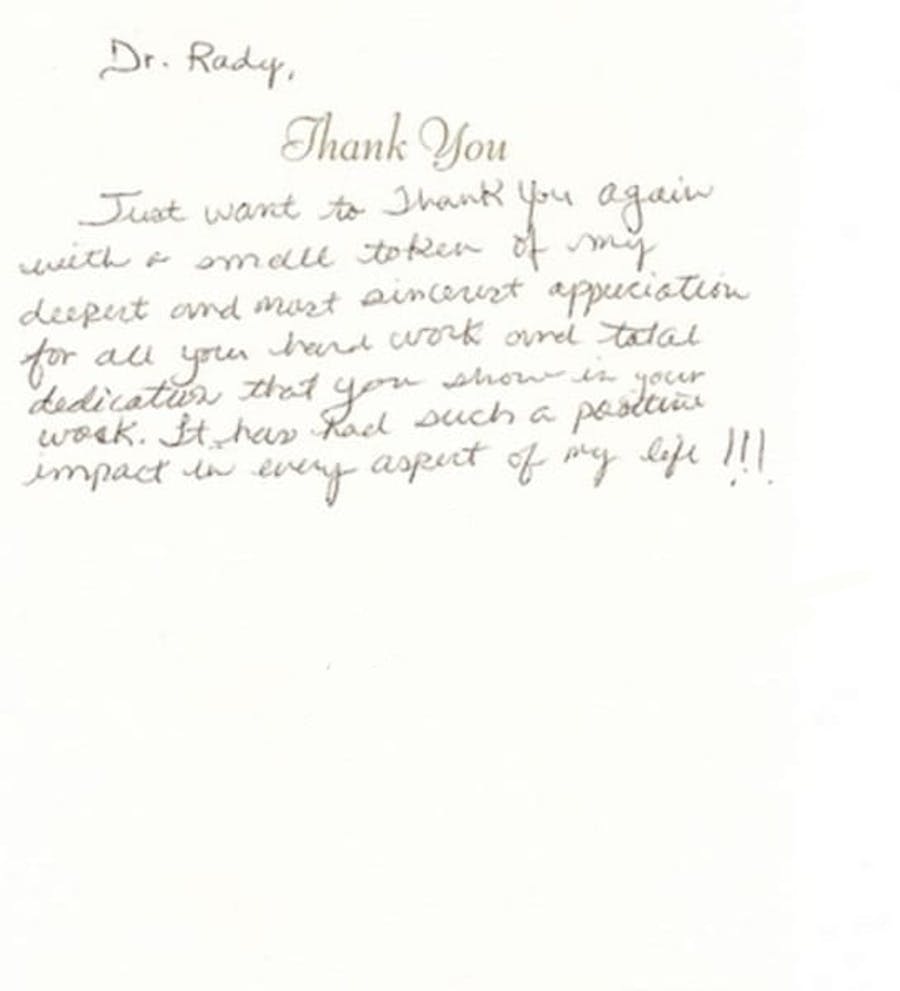 Dr. Rady,
Thank You
Just want to Thank You again
with a small token of my
deepest and most sincerest appreciation
for all your hard work and total
dedication that you show in your
work. It has had such a positive
impact in every aspect of my life !!!